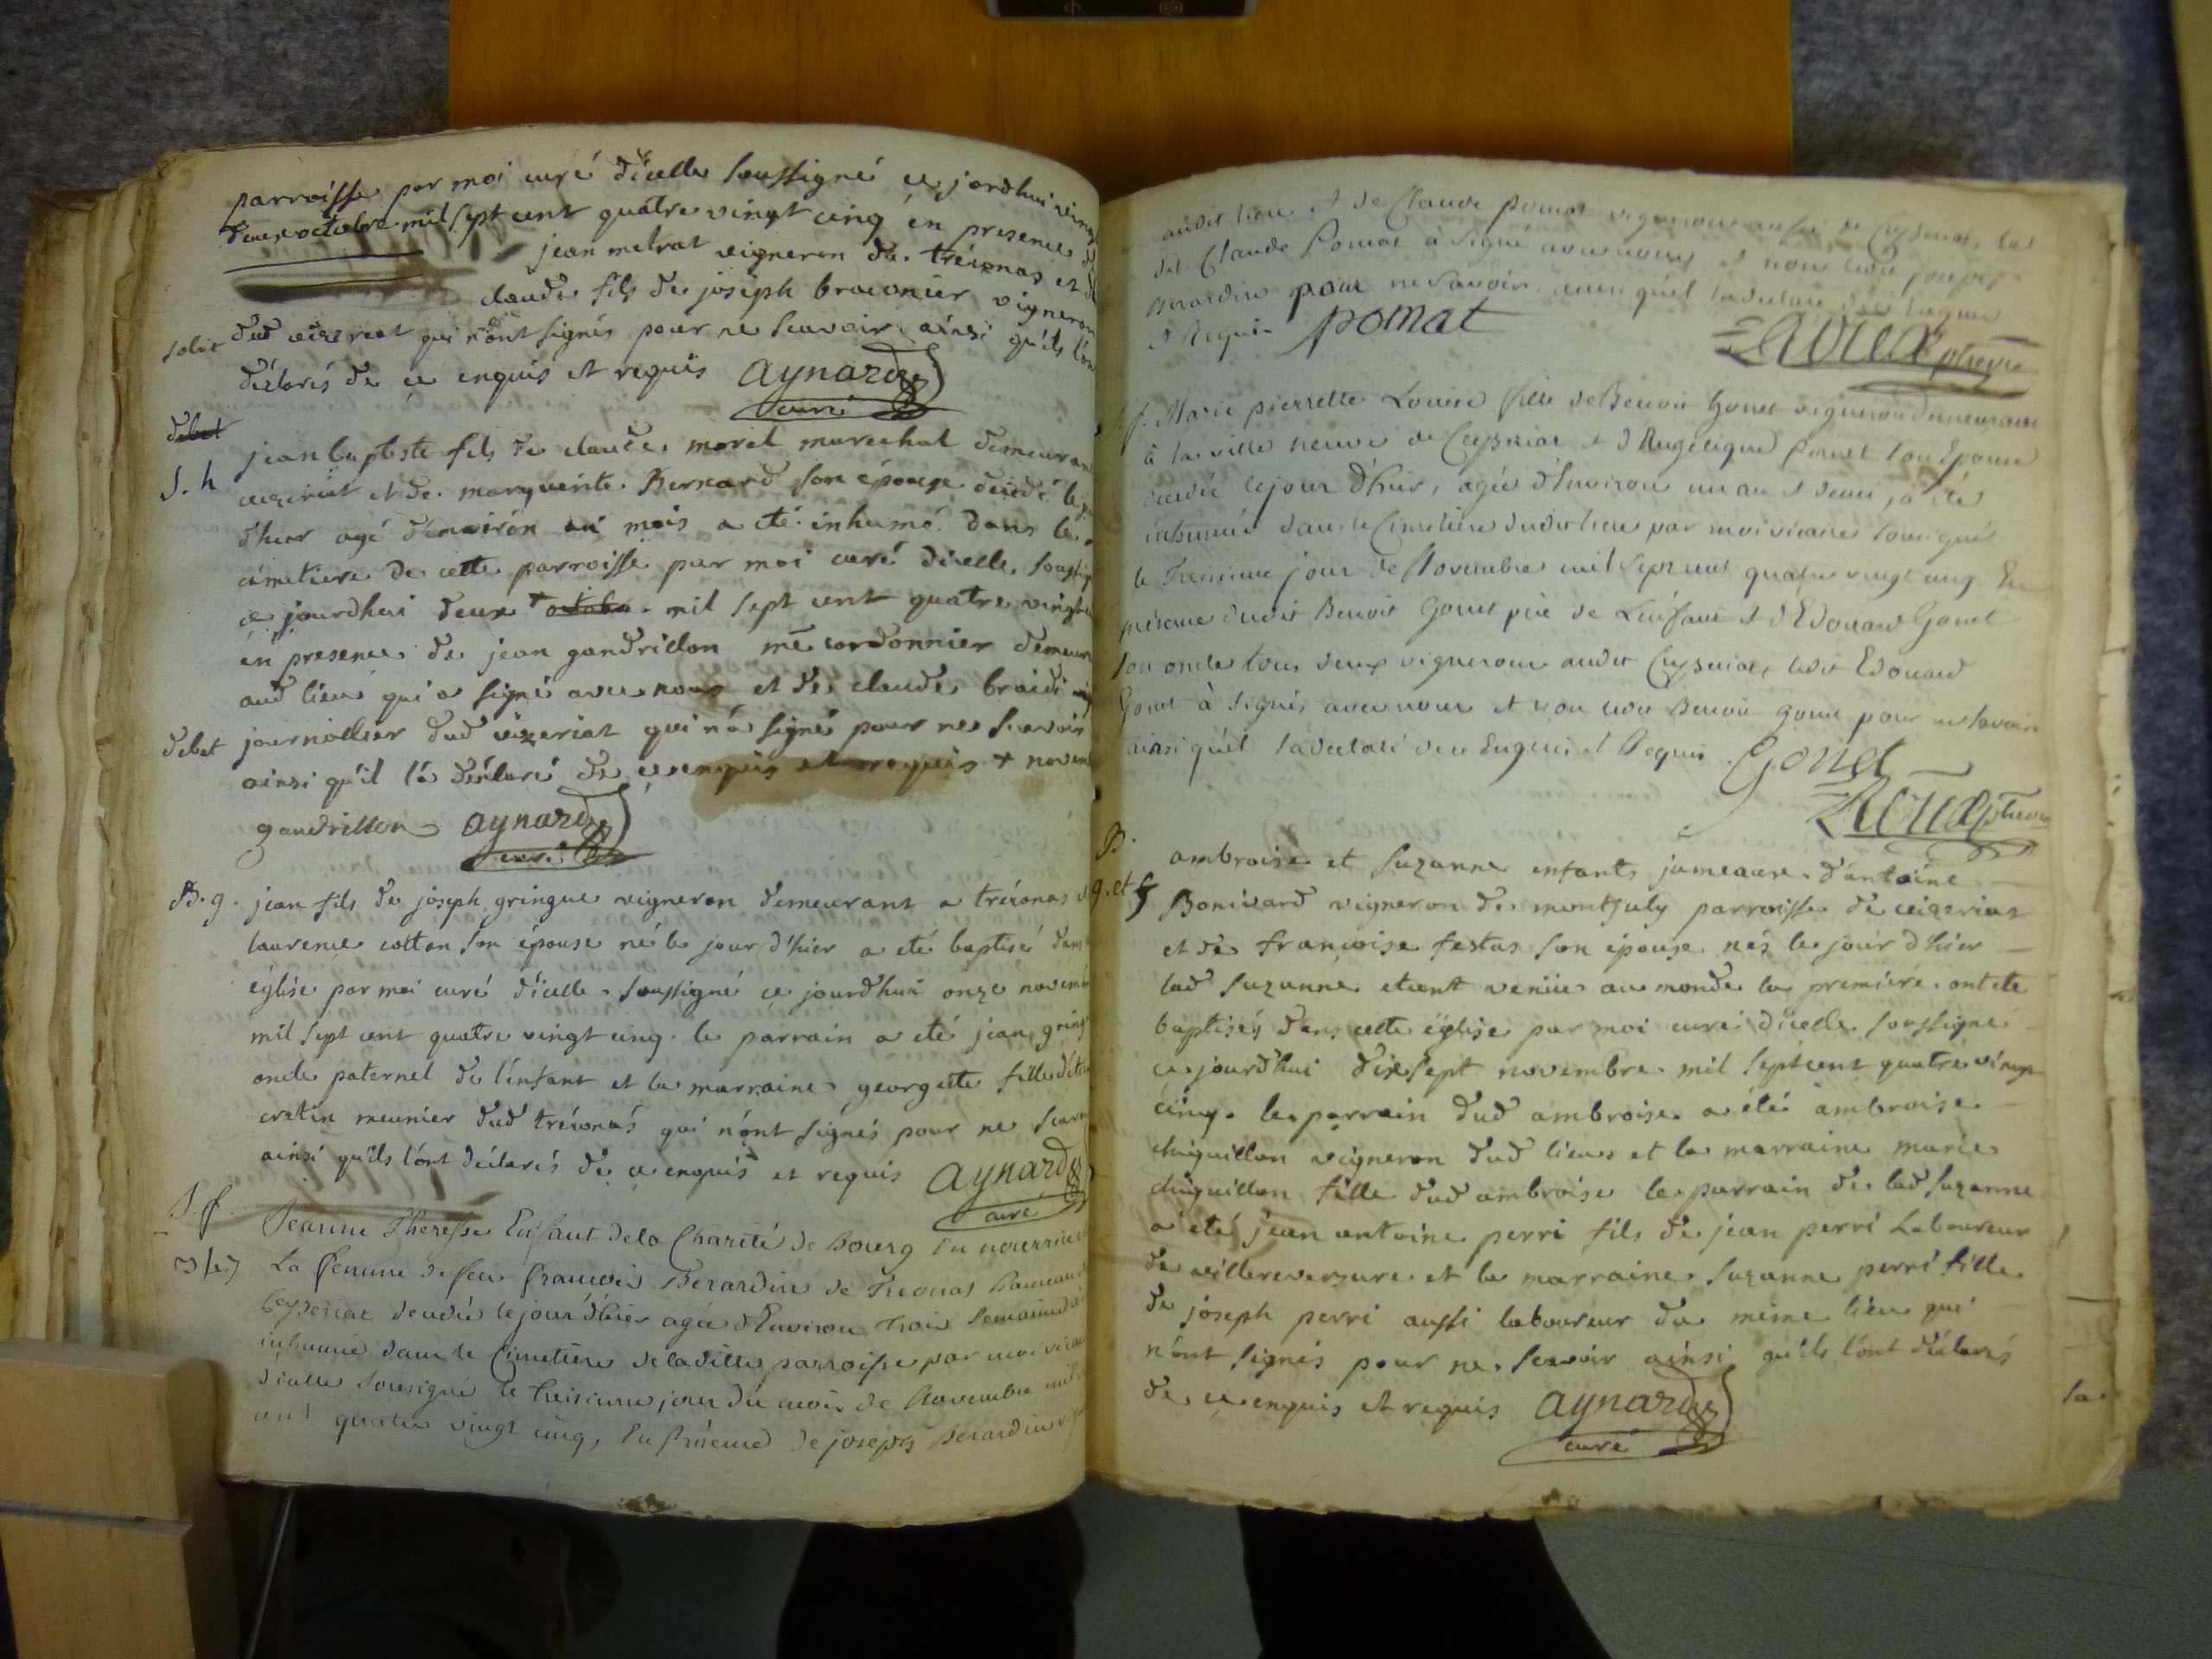 parroisse par moi curé dicelle soussigné ce jordhui vingt
deux octobre mil sept cent quatre vingt cinq en presence de
jean melrat vigneron de tréconas et de
claude fils de joseph braconier vigneron
solit dud ceizeriat qui n'ont signés pour ne scavoir ainsi qu'ils l'ont
déclarés de ce enquis et requis aynard
curé
debet
S. h jean baptiste fils de claude morel marechal demeurant
ceizeriat et de marguerite Bernard son épouse decedé le jour
d'hier agé d'environ un mois a eté inhumé dans le
cimetiere de cette parroisse par moi curé dicelle soussigné
ce jourdhui deux + octobre mil sept cent quatre vingt
en presence de jean gandrillon me cordonnier demeurant
aud lieu qui a signé avec nous et de claude
debet journallier dud ceizeriat qui n'a signé pour ne scavoir
ainsi qu'il l'a déclaré de ce enquis et requis + novembre
gandrillon aynard
curé
B. g. jean fils de joseph gringue vigneron demeurant a tréconas et
laurence cotton son épouse né le jour d'hier a eté baptisé dans
église par moi curé dicelle soussigné ce jourdhui onze novembre
mil sept cent quatre vingt cinq. le parrain a eté jean gringue
oncle paternel de l'enfant et la marraine georgette fille
cretin meunier dud tréconas qui n'ont signés pour ne scavoir
ainsi qu'ils l'ont déclarés de ce enquis et requis aynard
curé
S. f. Jeanne Theresse Enfant de la Charité de Bourg En nourrice
La femme de feu francois Berardin de Treconas hameau
Ceyseriat decedée le jour d'hier agée d'Environ trois semaines a
inhumée dans le Cimetière de ladite parroisse par moi vicaire
d'icelle sousigné le treisieme jour du mois de Novembre mil
cent quatre vingt cinq, En présence de joseph Berardin
audit lieu et de Claude pomat vigneron aussi de Ceyseriat, le
dit Claude Pomat à signé avec nous et non ledit joseph
Berardin pour ne savoir, ainsi qu'il la declaré de ce Enquis
et Requis pomat
ptre vic
S. f. Marie pierrette Louise fille de Benoit Gonet vigneron demeurant
à la ville neuve de Ceyseriat et d'Angelique son Epouse
decedée le jour d'hier, agée d'Environ un an et demi, a été
inhumée dans le Cimetière dudit lieu par moi vicaire sousigné
le treisieme jour de Novembre mil sept cent quatre vingt cinq En
présence dudit Benoit Gonet père de L'enfant et d'Edouard Gonet
son oncle tous deux vignerons audit Ceyseriat, ledit Edouard
Gonet à signés avec nous et non ledit Benoit gonet pour ne savoir
ainsi qu'il la declaré de ce Enquis et Requis Gonet
ptre vic
B.
g. et f ambroise et suzanne enfants jumeaux d'antoine
Bonivard vigneron de montjuly parroisse de ceizeriat
et de francoise festas son épouse nés le jour d'hier
lad suzanne etant venüe au monde la premiere ont ete
baptisés dans cette église par moi curé dicelle soussigné
ce jourdhui dix sept novembre mil sept cent quatre vingt
cinq. le parrain dud ambroise a été ambroise
chiquillon vigneron dud lieu et la marraine marie
chiquillon fille dud ambroise le parrain de lad suzanne
a eté jean antoine perri fils de jean perri Laboureur
de villereversure et la marraine suzanne perri fille
de joseph perri aussi laboureur du meme lieu qui
n'ont signés pour ne scavoir ainsi qu'ils l'ont déclarés
de ce enquis et requis aynard
curé
la